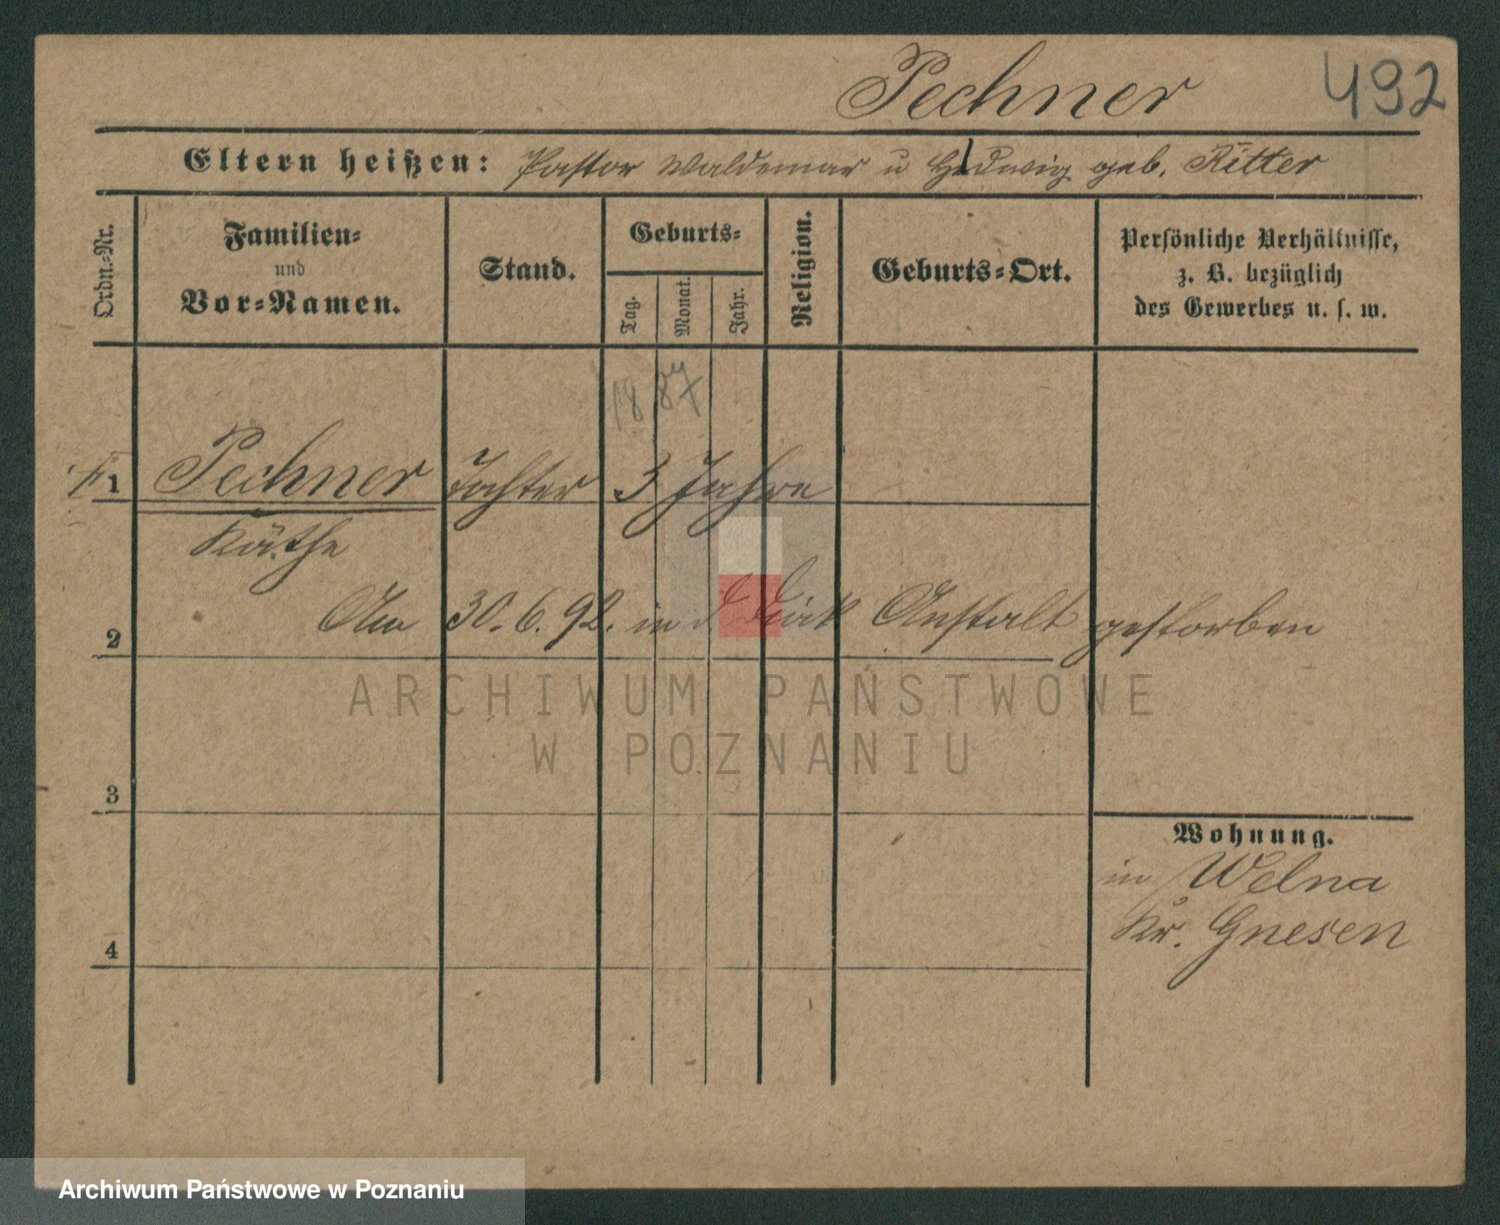 Pechner 492
Eltern heißen: Pastor Waldemar u Hedwig geb. Ritter
Ordn.-Nr.
Familien-
und
Vor-Namen.
Stand.
Geburts-
Tag.
Monat.
Jahr.
Religion.
Geburts-Ort.
Persönliche Verhältnisse,
z. B. bezüglich
des Gewerbes u. s. w.
1887
1 Pechner Tochter 3 Jahre
Käthe
Am 30. 6. 92. in d. Diak Anstalt gestorben
2
ARCHIWUM PAŃSTWOWE
W POZNANIU
3
Wohnung.
in Welna
Kr. Gnesen
4
Archiwum Państwowe w Poznaniu